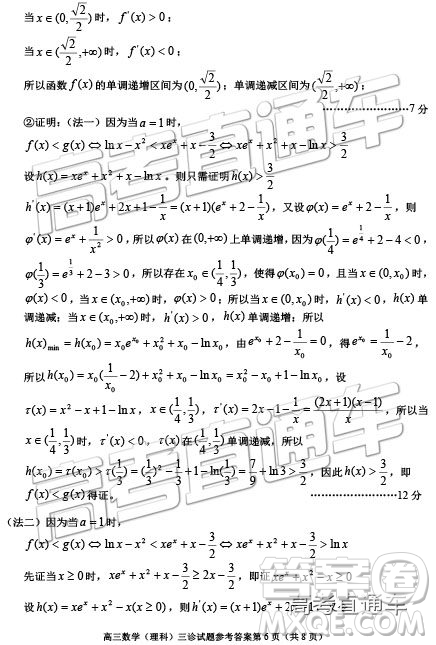 当 x∈(0, √2/2) 时，f'(x) > 0；
当 x∈(√2/2, +∞) 时，f'(x) < 0；
所以函数 f(x) 的单调递增区间为 (0, √2/2)；单调递减区间为 (√2/2, +∞)；
…………………………7 分
②证明：(法一) 因为当 a = 1 时，
f(x) < g(x) ⇔ ln x − x² < xeˣ + x − 3/2 ⇔ xeˣ + x² + x − ln x > 3/2
设 h(x) = xeˣ + x² + x − ln x。则只需证明 h(x) > 3/2
h'(x) = (x+1)eˣ + 2x + 1 − 1/x = (x+1)(eˣ + 2 − 1/x)，又设 φ(x) = eˣ + 2 − 1/x，则
φ'(x) = eˣ + 1/x² > 0，所以 φ(x) 在 (0,+∞) 上单调递增，因为 φ(1/4) = e^(1/4) + 2 − 4 < 0，
φ(1/3) = e^(1/3) + 2 − 3 > 0，所以存在 x₀∈(1/4, 1/3)，使得 φ(x₀) = 0，且当 x∈(0, x₀) 时，
φ(x) < 0，当 x∈(x₀,+∞) 时，φ(x) > 0；所以当 x∈(0, x₀) 时，h'(x) < 0，h(x) 单
调递减；当 x∈(x₀,+∞) 时，h'(x) > 0，h(x) 单调递增；所以
h(x)min = h(x₀) = x₀e^(x₀) + x₀² + x₀ − ln x₀，由 e^(x₀) + 2 − 1/x₀ = 0，得 e^(x₀) = 1/x₀ − 2，
所以 h(x₀) = x₀(1/x₀ − 2) + x₀² + x₀ − ln x₀ = x₀² − x₀ + 1 − ln x₀，设
τ(x) = x² − x + 1 − ln x，x∈(1/4, 1/3)，τ'(x) = 2x − 1 − 1/x = (2x+1)(x−1)/x，所以当
x∈(1/4, 1/3) 时，τ'(x) < 0，τ(x) 在 (1/4, 1/3) 单调递减，所以
h(x₀) = τ(x₀) > τ(1/3) = (1/3)² − 1/3 + 1 − ln(1/3) = 7/9 + ln 3 > 3/2，因此 h(x) > 3/2，即
f(x) < g(x) 得证。 …………………………12 分
(法二) 因为当 a = 1 时，
f(x) < g(x) ⇔ ln x − x² < xeˣ + x − 3/2 ⇔ xeˣ + x² + x − 3/2 > ln x
先证当 x ≥ 0 时，xeˣ + x² + x − 3/2 ≥ 2x − 3/2，即证 xeˣ + x² − x ≥ 0
设 h(x) = xeˣ + x² − x (x ≥ 0)，则 h'(x) = (x+1)eˣ + 2x − 1，
高三数学（理科）三诊试题参考答案第 6 页（共 8 页）
高考直通车
高考直通车
高考直通车